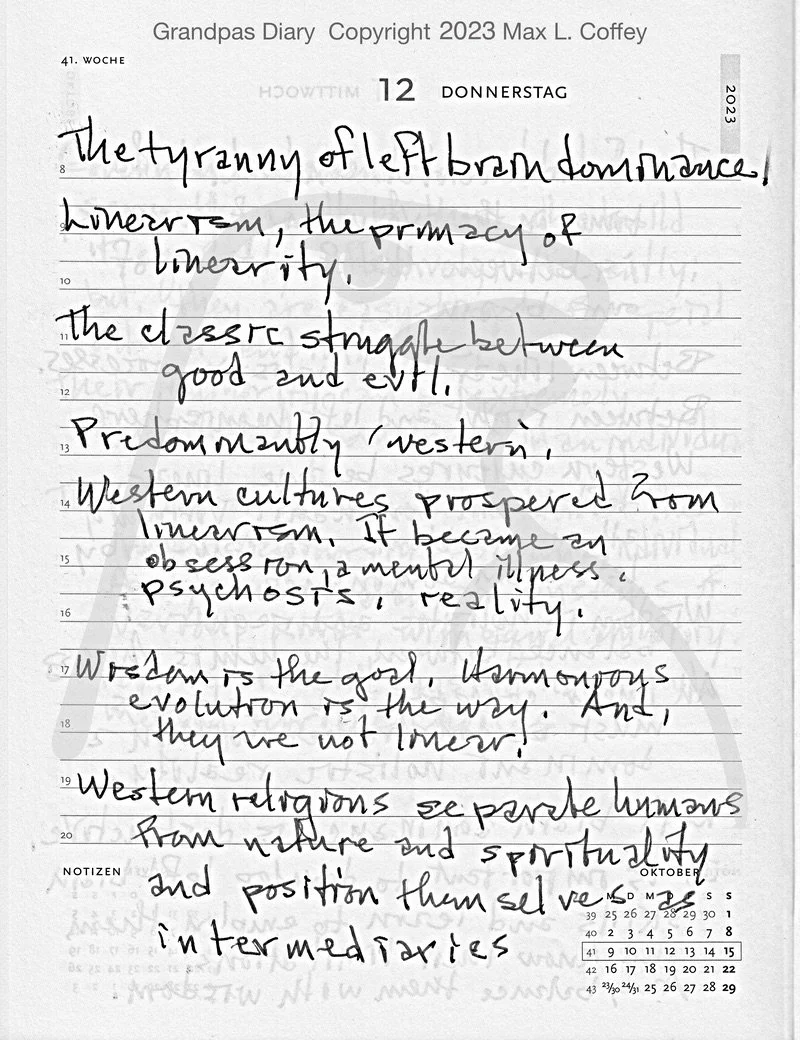 Grandpas Diary Copyright 2023 Max L. Coffey
41. WOCHE
12 DONNERSTAG
2023
The tyranny of left brain dominance!
8
Linearism, the primacy of
9
linearity.
10
The classic struggle between
11
good and evil.
12
Predominantly 'western'.
13
Western cultures prospered from
14
linearism. It became an
obsession, a mental illness.
15
psychosis, reality.
16
Wisdom is the goal. Harmonious
17
evolution is the way. And,
they're not linear!
18
Western religions separate humans
19
from nature and spirituality
20
and position themselves as
intermediaries
NOTIZEN
OKTOBER
M D M D F S S
39 25 26 27 28 29 30 1
40 2 3 4 5 6 7 8
41 9 10 11 12 13 14 15
42 16 17 18 19 20 21 22
43 23/30 24/31 25 26 27 28 29